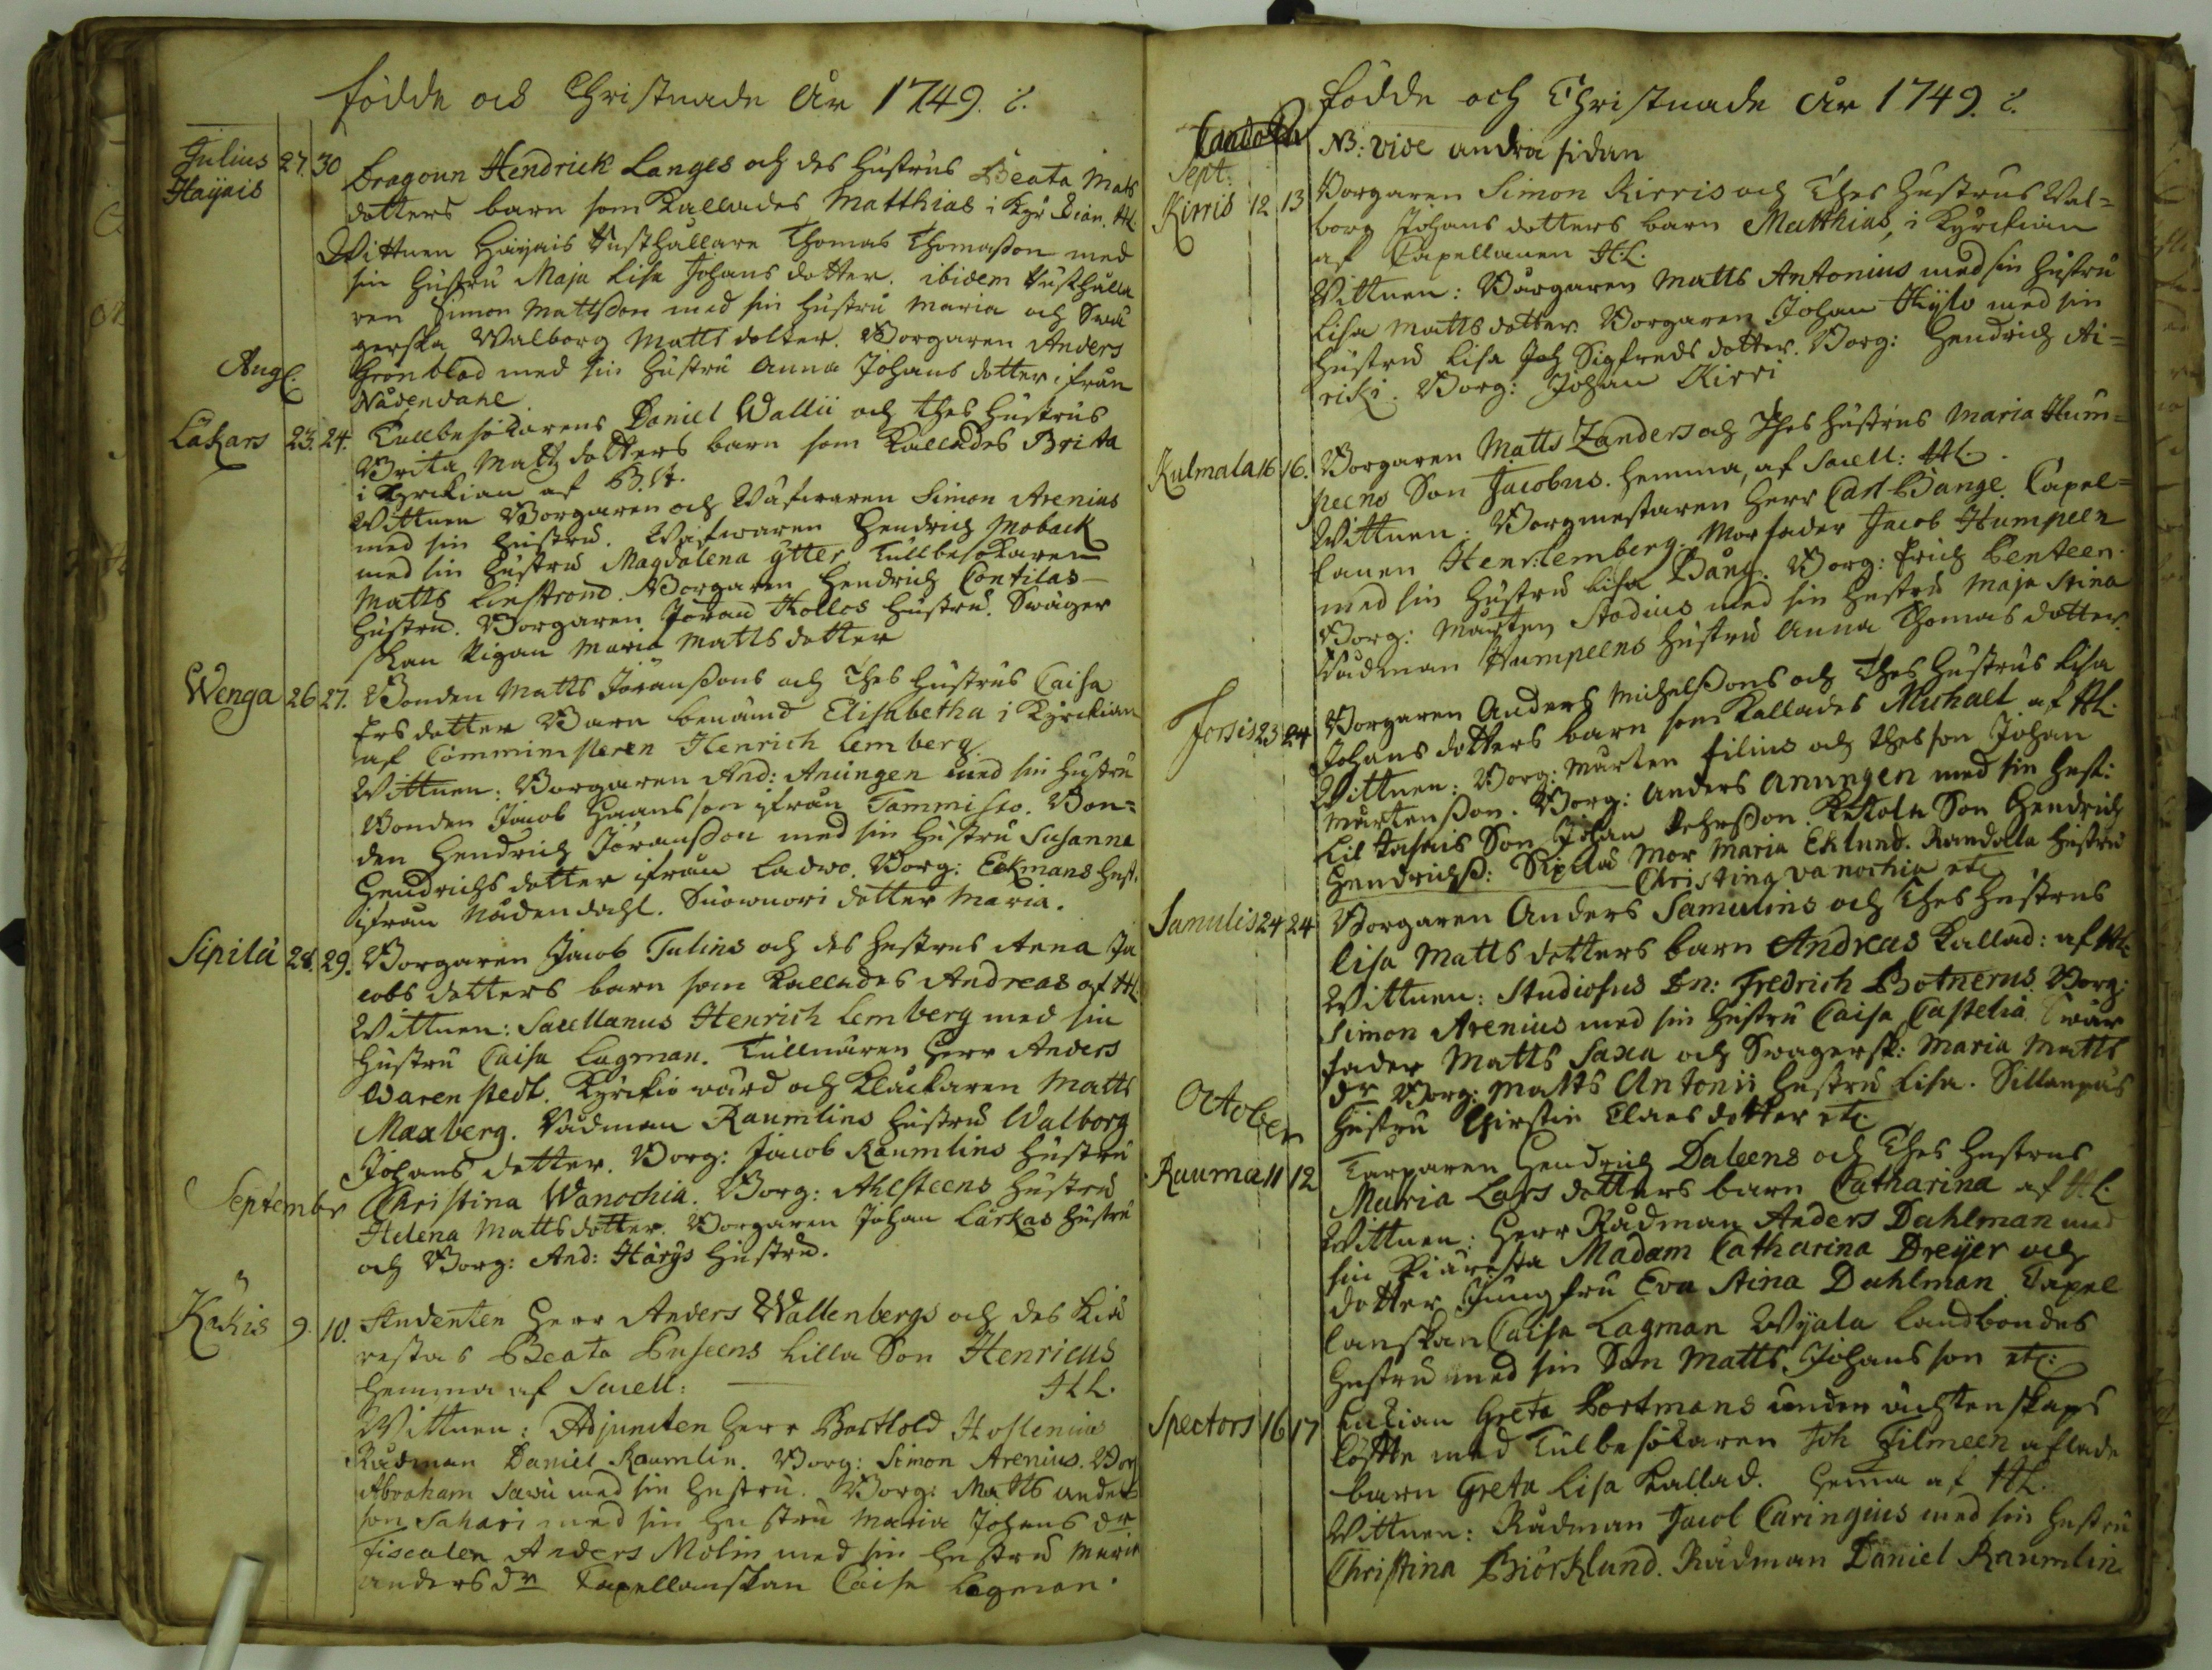 födde och Christnade År 1749.
Julius 27. 30 Dragoun Hendrick Langes och des hustrus Beata Mats
Haijais dotters barn som kallades Matthias i Kyrckian. HL.
Wittnen Haijais Rusthållare Thomas Thomasson med
sin hustru Maja Lisa Johans dotter. ibidem Rusthålla
ren Simon Mattsson med sin hustru Maria och Swä
gerska Walborg Matts dotter. Borgaren Anders
Aug: Grönblad med sin hustru Anna Johans dotter ifrån
Nådendahl
Läkars 23. 24. Tullbesökarens Daniel Wallii och thes hustrus
Brita Matts dotters barn som kallades Brita
i Kyrckian af B. H.
Wittnen Borgaren och Wäfwaren Simon Arenius
med sin hustru. Wäfwaren Hendrich Moback
med sin hustru Magdalena ytter Tullbesökaren
Matts Linstrond. Borgaren Hendrich Contilas
hustru. Borgaren Jöran Kollos hustru. Swäger
skan Pigan Maria Matts dotter
Wenga 26 27. Bonden Matts Jöranssons och thes hustrus Caisa
Ers dotter Barn benämd Elisabetha i Kyrckian
af Comministeren Henrich Lemberg.
Wittnen: Borgaren And: Aningen med sin hustru
Bonden Jacob Hansson ifrån Tammisto. Bon=
den Hendrich Jöransson med sin hustru Susanna
Hendrichs dotter ifrån Ladwo. Borg: Eekmans hust.
ifrån Nådendahl. Suowuori dotter Maria.
Sipilä 28. 29. Borgaren Jacob Tulins och des hustrus Anna Ja
cobs dotters barn som kallades Andreas af HL
Wittnen: Sacellanus Henrich Lemberg med sin
hustru Caisa Lagman. Tullnären Herr Anders
Warenstedt. Kyrckiowärd och Klåckaren Matts
Maxberg. Rådman Raumlins hustru Walborg
Johans dotter. Borg: Jacob Raumlins hustru
September Christina Wanochia. Borg: Ahlsteens hustru
Helena Matts dotter. Borgaren Johan Lärkas hustru
och Borg: And: Härys hustru.
Kåkis 9. 10. Studenten Herr Anders Wallenbergs och des kiä
restas Beata Puseens lilla Son Henricus
hemma af Sacell: HL.
Wittnen: Adjuncten Herr Barthold Hoslenius
Rådman Daniel Raumlin. Borg: Simon Arenius. Borg
Abraham Sawi med sin hustru. Borg: Matts anders
son Sahari med sin hustru Maria Johans dr
Fiscalen Anders Molin med sin hustru Maria
anders dr Capellanskan Caisa Lagman.
födde och Christnade År 1749.
NB: vide andra sidan
Sept.
Kirris 12 13 Borgaren Simon Kirris och thes hustrus Wal=
borg Johans dotters barn Matthias, i Kyrckian
af Capellanen H.L.
Wittnen: Borgaren Matts Antonius med sin hustru
Lisa Matts dotter. Borgaren Johan Kylo med sin
hustru Lisa Joh Sigfreds dotter. Borg: Hendrich Ai=
riki. Borg: Johan Kirri
Kulmala 16 16. Borgaren Matts Zanders och thes hustrus Maria Hum=
peens Son Jacobus. hemma, af Sacell: HL.
Wittnen: Borgmestaren Herr Carl Bånge. Capel=
lanen Henr: Lemberg. Morfader Jacob Humpeen
med sin hustru Lisa Bång. Borg: Erich Benteen.
Borg: Mårten Stodius med sin hustru Maja Stina
Rådman Humpeens hustru Anna Thomas dotter
Forsis 23 24 Borgaren Anders Michelssons och thes hustrus Lisa
Johans dotters barn som kallades Michael af HL.
Wittnen: Borg: Mårten Filius och thes son Johan
Mårtensson. Borg: Anders Anungen med sin hust:
Lill Tahais Son Johan Pehrsson. Ketola Son Hendrich
Hendrichss: Sipilä Mor Maria Eklund. Randala hustru
Christina Vanochia etc
Samulis 24 24 Borgaren Anders Samulins och thes hustrus
Lisa Matts dotters barn Andreas kallad: af HL
Wittnen: Studiosus Dn: Fredrich Botnerus. Borg:
Simon Arenius med sin hustru Caisa Castelia. Swär
fader Matts Saxa och Swägersk: Maria Matts
dr Borg: Matts Antonii hustru Lisa. Sillanpäs
October hustru Chirstin Claes dotter etc
Rauma 11 12 Torparen Hendrich Daleens och thes hustrus
Maria Lars dotters barn Catharina af H.L.
Wittnen: Herr Rådman Anders Dahlman med
sin kiäresta Madam Catharina Dreijer och
dotter Jungfru Eva Stina Dahlman. Capel
lanskan Caisa Lagman Wyala Landbondes
hustru med sin Son Matts Johansson etc:
Spectors 16 17 Greta Bortmans under ächtenskaps
löffte med Tullbesökaren Joh Filmeen aflade
barn Greta Lisa kallad. hema af HL.
Wittnen: Rådman Jacob Caringius med sin hustru
Christina Biörklund. Rådman Daniel Raumlin